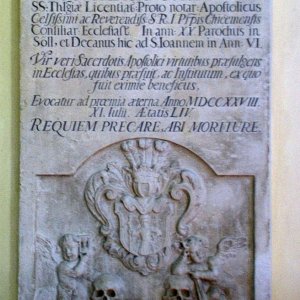 SS. Thlgiæ Licentiat9 Proto notar9 Apostolicus
Celsissimi ac Reverendiss S. R. I. Ppis Chiemensis
Consiliar Ecclesiast. In ann XX Parochus in
Söll et Decanus hic ad S. Joannem in Ann VI.
Vir veri Sacerdotis Apostolici virtutibus præfulgens
in Ecclesias, quibus præfuit, ac Institutum, ex quo
fuit eximie beneficus,
Evocatur ad præmia æterna Anno MDCCXXVIII.
XI. Iulii, Ætatis LIV.
REQUIEM PRECARE, ABI MORITURE.